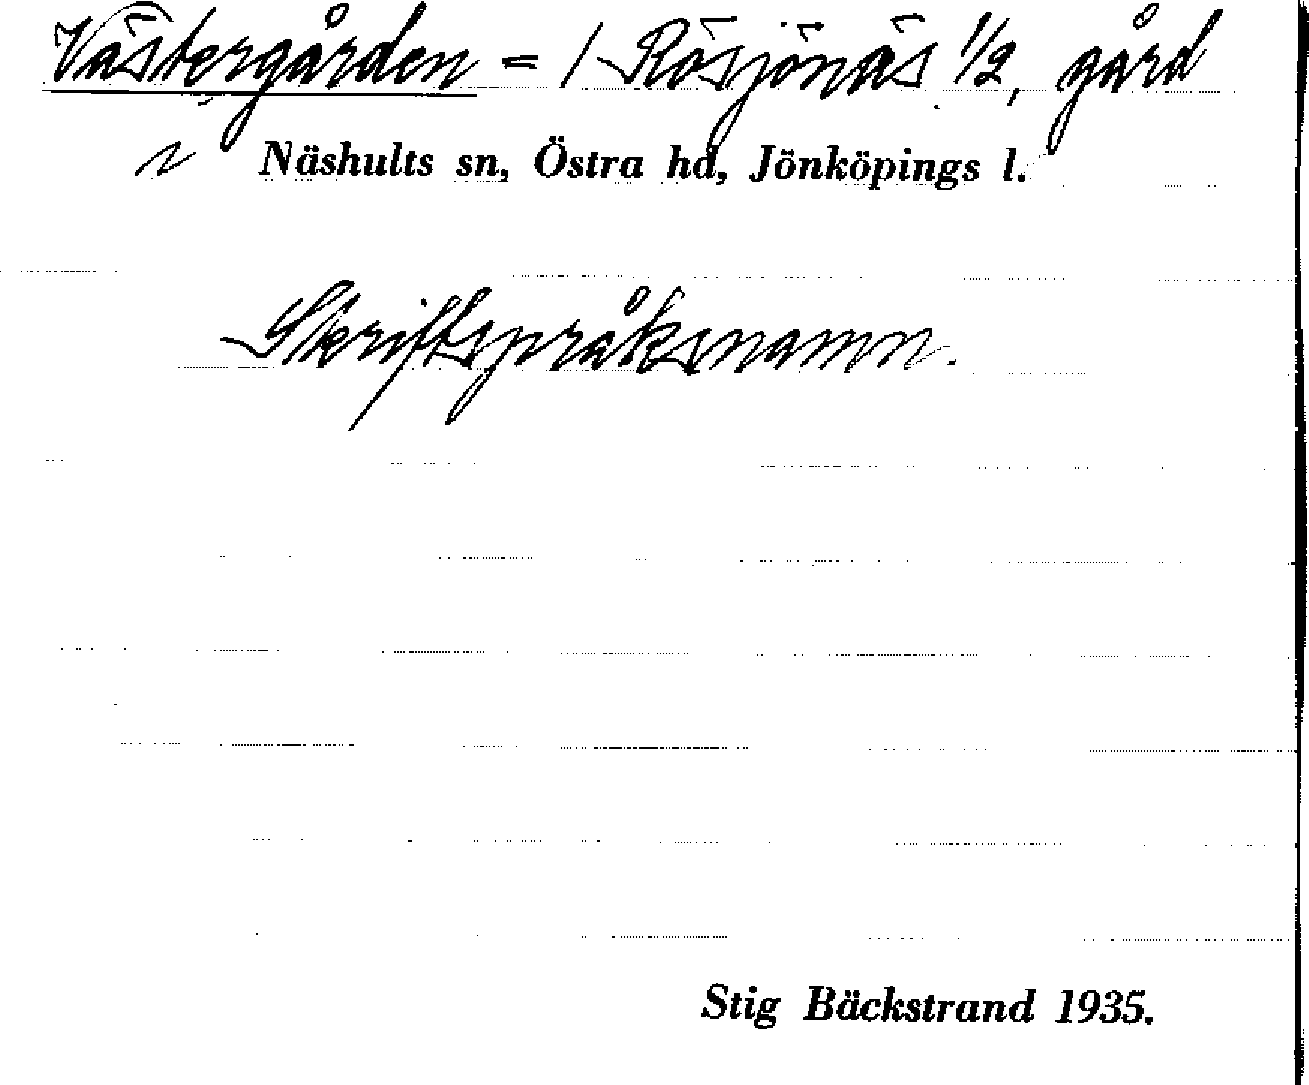 Västergården = 1 Rösjönäs 1/2, gård
Näshults sn, Östra hd, Jönköpings l.
Skriftspråksnamn.
Stig Bäckstrand 1935.